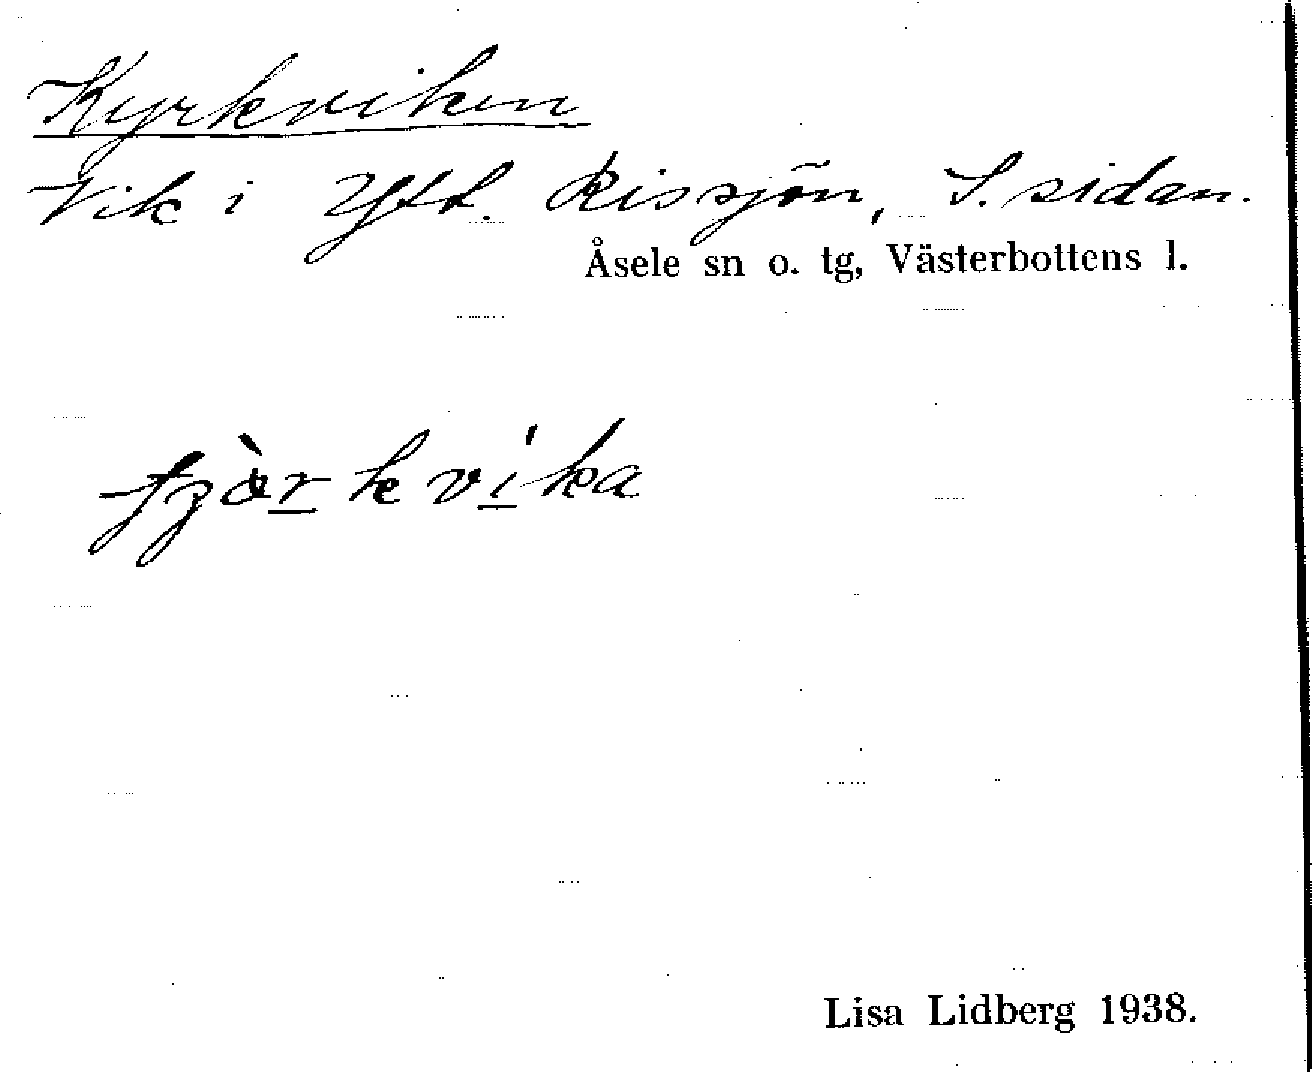 Kyrkviken
Vik i Ytt. Rissjön, S. sidan.
Åsele sn o. tg, Västerbottens l.
Lisa Lidberg 1938.